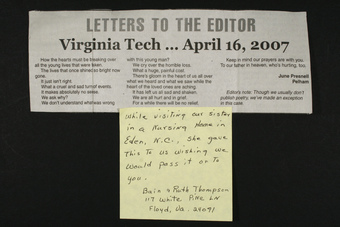 LETTERS TO THE EDITOR
Virginia Tech ... April 16, 2007
How the hearts must be breaking over
all the young lives that were taken.
The lives that once shined so bright now
gone.
It just isn't right.
What a cruel and sad turn of events.
It makes absolutely no sense.
We ask why?
We don't understand what was wrong
with this young man?
We cry over the horrible loss.
What a huge, painful cost.
There's gloom in the heart of us all over
what we heard and what we saw while the
heart of the loved ones are aching.
It has left us all sad and shaken.
We are all hurt and in grief.
For a while there will be no relief.
Keep in mind our prayers are with you.
To our father in heaven, who's hurting, too.
June Presnell
Pelham
Editor's note: Though we usually don't
publish poetry, we've made an exception
in this case.
While visiting our sister
in a Nursing Home in
Eden, N.C., she gave
This to us wishing we
would pass it on to
you.
Bain & Ruth Thompson
117 White Pine LN
Floyd, Va. 24091